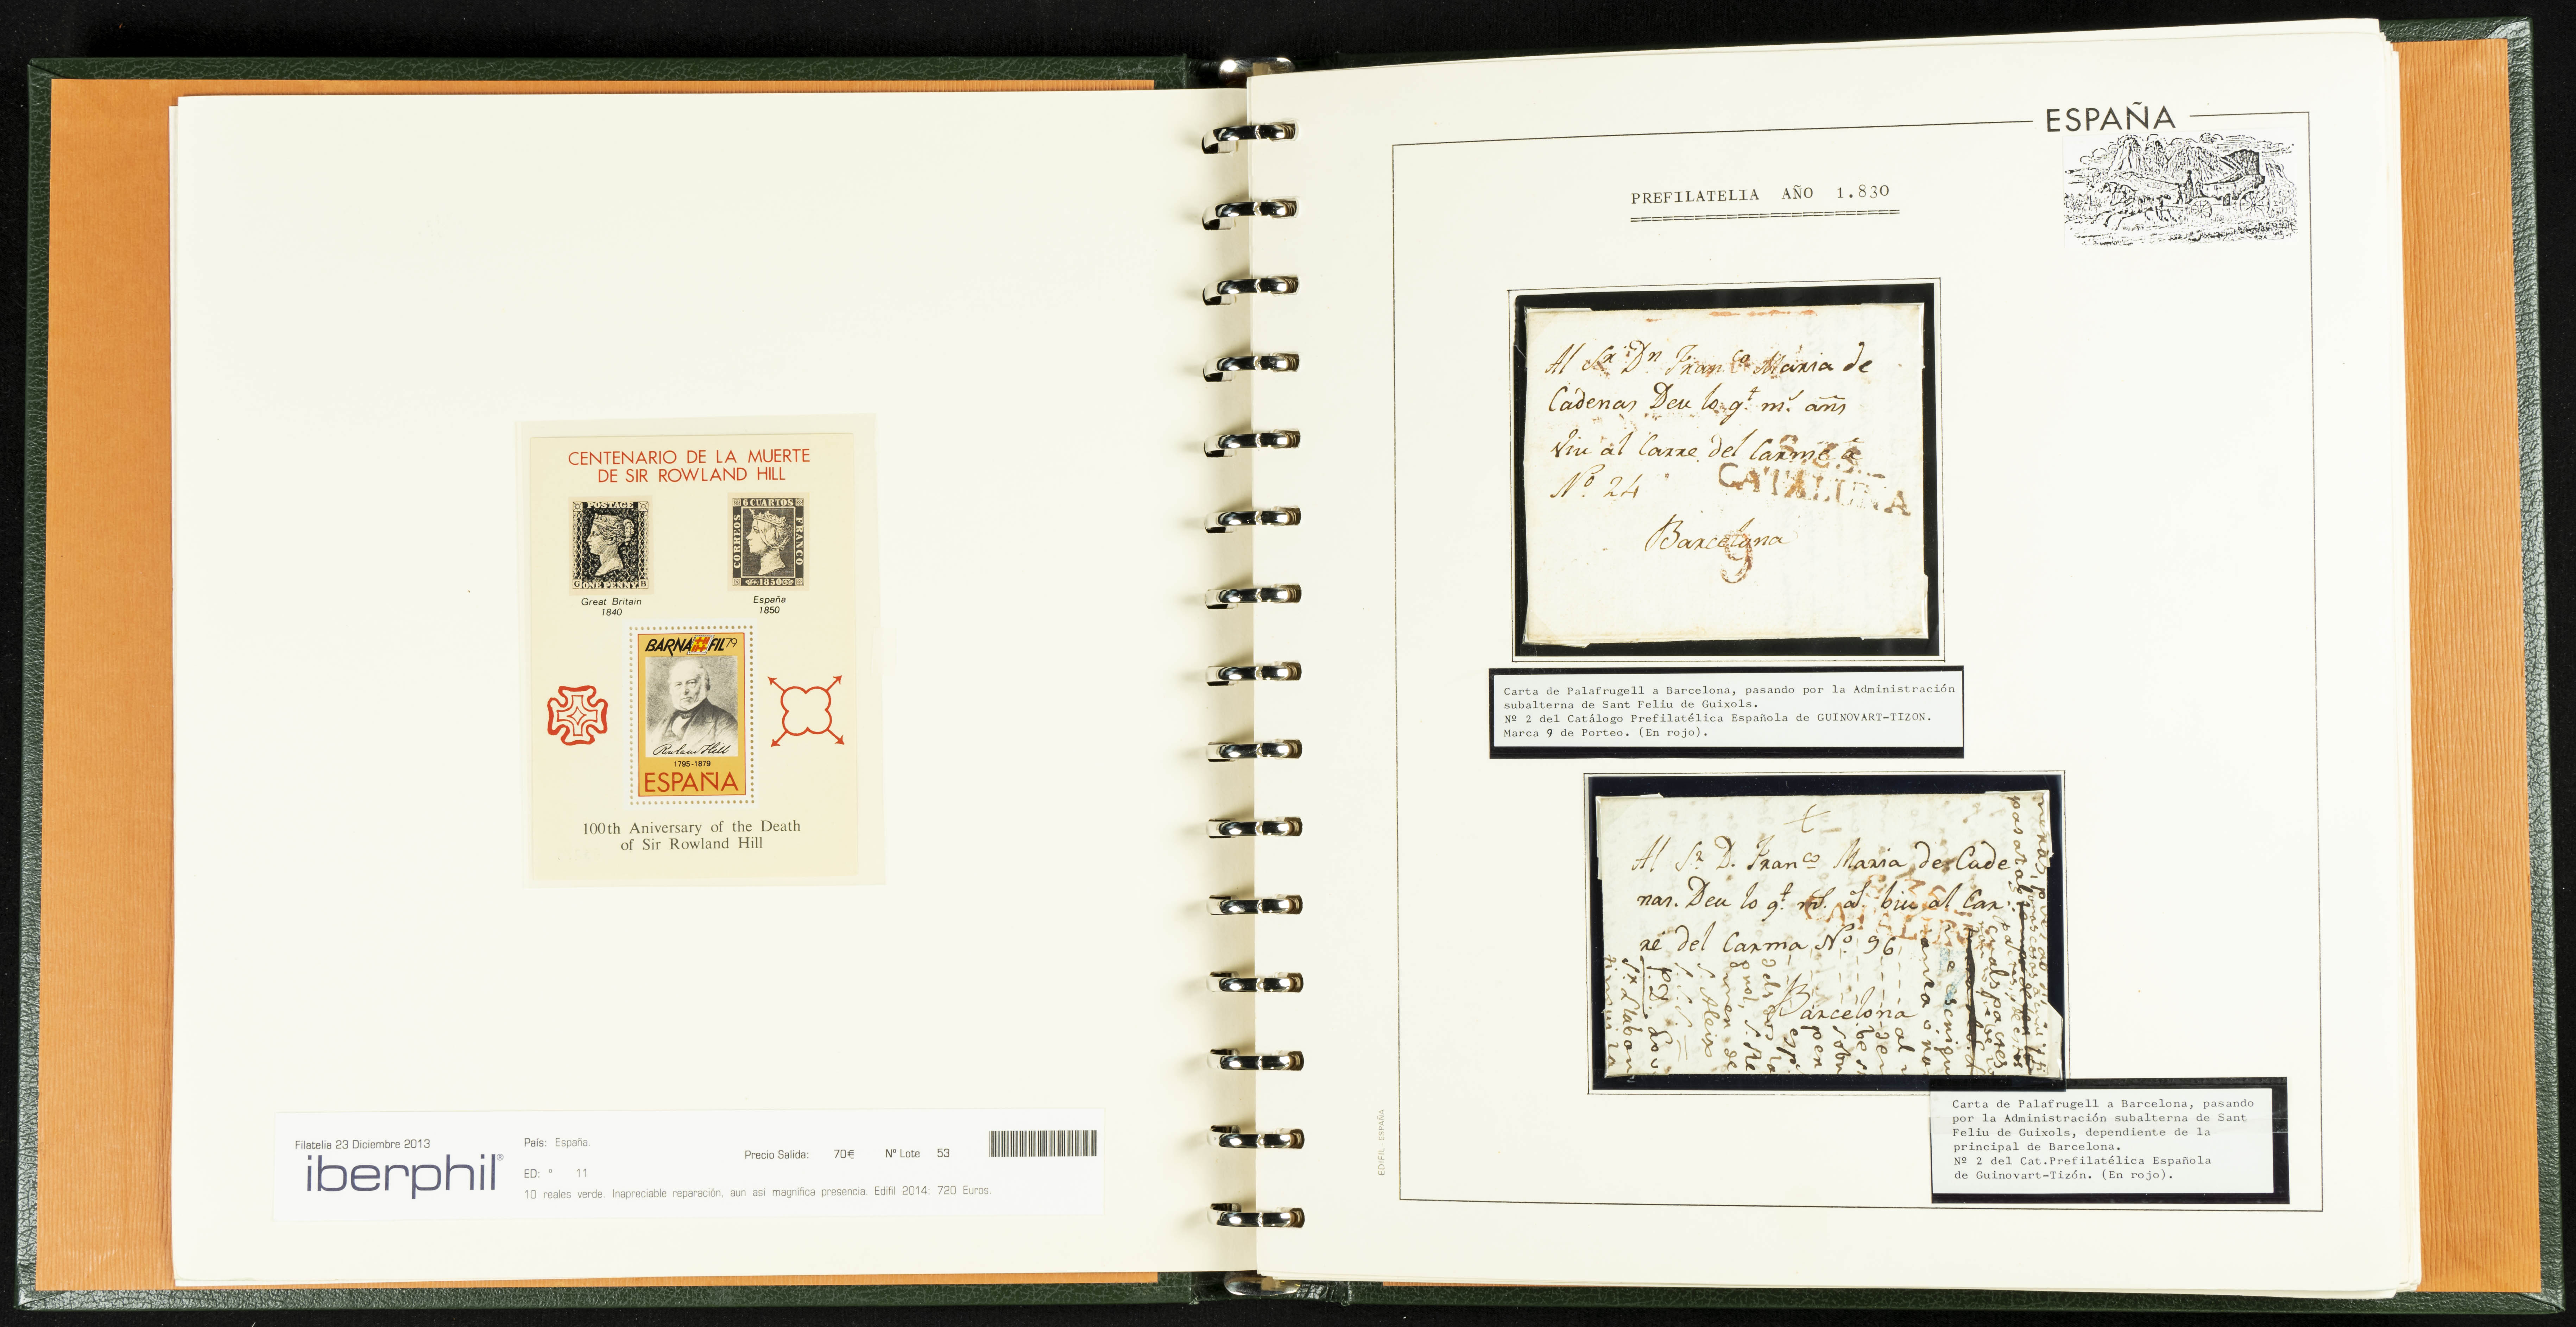 CENTENARIO DE LA MUERTE
DE SIR ROWLAND HILL
POSTAGE
G ONE PENNY B
6 CUARTOS
CORREOS
FRANCO
1850
Great Britain
1840
España
1850
BARNAFIL 79
Rowland Hill
1795-1879
ESPAÑA
100th Aniversary of the Death
of Sir Rowland Hill
Filatelia 23 Diciembre 2013
iberphil®
País: España.
Precio Salida: 70€ Nº Lote 53
ED: º 11
10 reales verde. Inapreciable reparación, aun así magnífica presencia. Edifil 2014: 720 Euros.
ESPAÑA
PREFILATELIA AÑO 1.830
Al Sr. Dn Franco Maria de
Cadenas Deu lo gt ms. añs
Viu al Carre del Carme
No. 24
CATALUÑA
Barcelona
9
Carta de Palafrugell a Barcelona, pasando por la Administración
subalterna de Sant Feliu de Guixols.
Nº 2 del Catálogo Prefilatélica Española de GUINOVART-TIZON.
Marca 9 de Porteo. (En rojo).
Al Sr. D. Franco Maria de Cade
nas. Deu lo gt ms. as. biu al Car
re del Carma No 96
Barcelona
Carta de Palafrugell a Barcelona, pasando
por la Administración subalterna de Sant
Feliu de Guixols, dependiente de la
principal de Barcelona.
Nº 2 del Cat.Prefilatélica Española
de Guinovart-Tizón. (En rojo).
EDIFIL - ESPAÑA